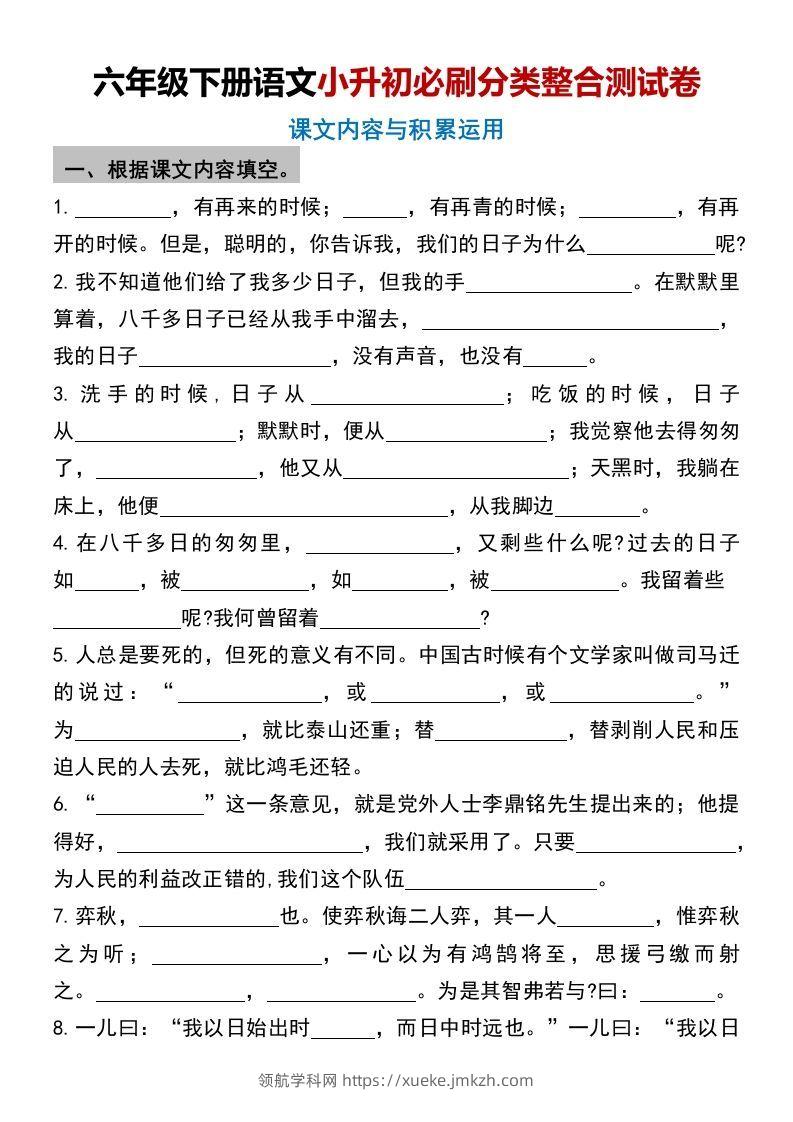 六年级下册语文小升初必刷分类整合测试卷
课文内容与积累运用
一、根据课文内容填空。
1. _________，有再来的时候；______，有再青的时候；_________，有再
开的时候。但是，聪明的，你告诉我，我们的日子为什么____________呢?
2. 我不知道他们给了我多少日子，但我的手________________。在默默里
算着，八千多日子已经从我手中溜去，____________________________，
我的日子__________________，没有声音，也没有______。
3. 洗手的时候,日子从__________________；吃饭的时候，日子
从_______________；默默时，便从_______________；我觉察他去得匆匆
了，_______________，他又从_____________________；天黑时，我躺在
床上，他便___________________________，从我脚边________。
4. 在八千多日的匆匆里，______________，又剩些什么呢?过去的日子
如______，被____________，如_________，被____________。我留着些
____________呢?我何曾留着_______________?
5. 人总是要死的，但死的意义有不同。中国古时候有个文学家叫做司马迁
的说过：“______________，或____________，或______________。”
为________________，就比泰山还重；替____________，替剥削人民和压
迫人民的人去死，就比鸿毛还轻。
6. “__________”这一条意见，就是党外人士李鼎铭先生提出来的；他提
得好，_______________________，我们就采用了。只要_______________，
为人民的利益改正错的,我们这个队伍__________________。
7. 弈秋，_____________也。使弈秋诲二人弈，其一人_________，惟弈秋
之为听；________________，一心以为有鸿鹄将至，思援弓缴而射
之。______________，______________。为是其智弗若与?曰：_______。
8. 一儿曰：“我以日始出时______，而日中时远也。”一儿曰：“我以日
领航学科网 https://xueke.jmkzh.com